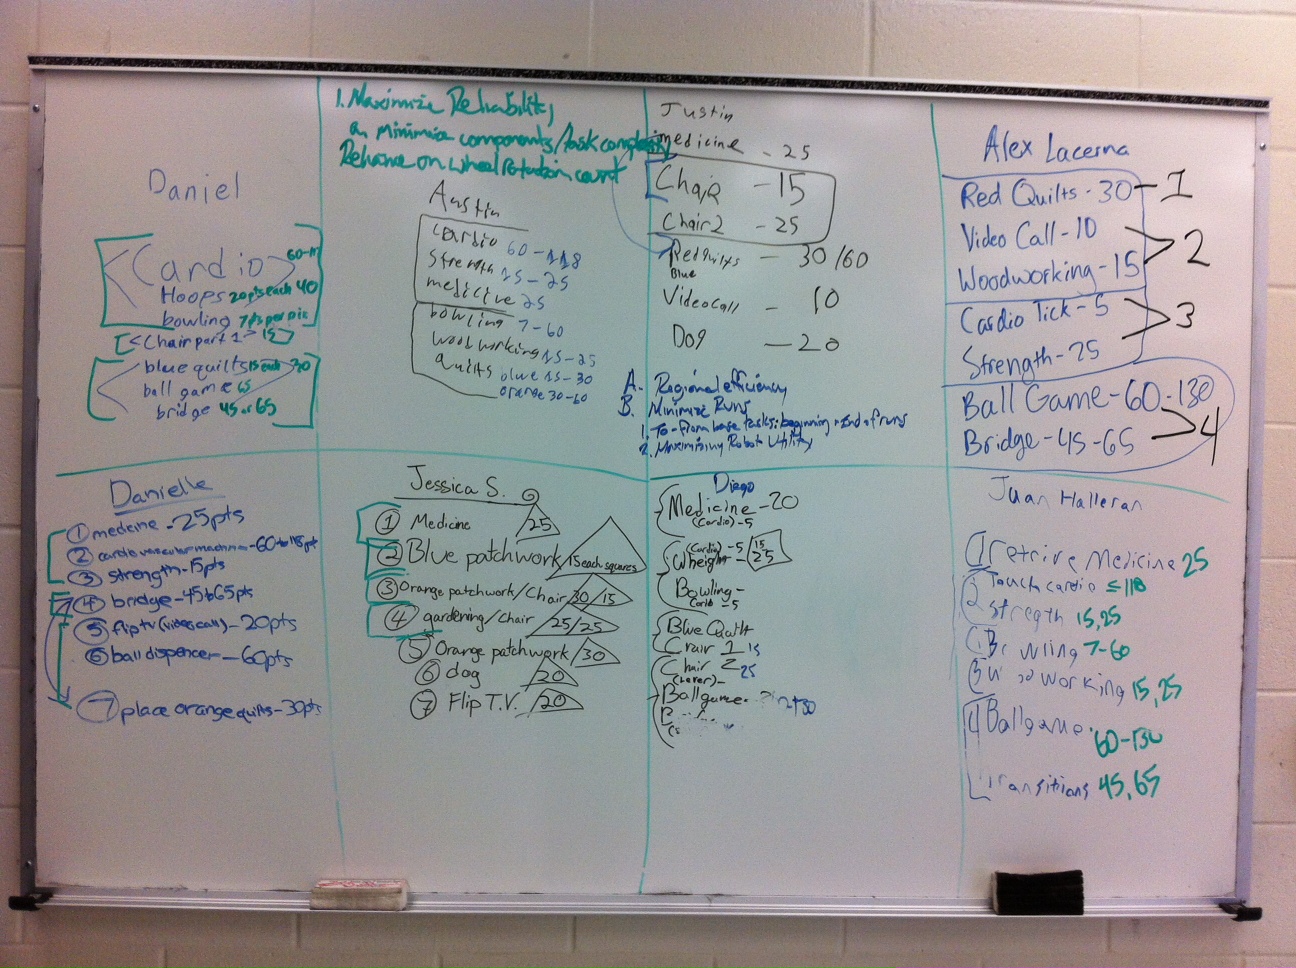 Daniel
Cardio 60-118
Hoops 20pts each 40
bowling 7pts per pin
Chair part 1 - 15
blue quilts 15 each 30
ball game 65
bridge 45 or 65
1. Maximize Reliability
a. minimize components/task complexity
Reliance on wheel rotation count
Austin
cardio 60-118
strength 15-25
medicine 25
bowling 7-60
woodworking 15-25
quilts blue 15-30
orange 30-60
Justin
medicine - 25
Chair - 15
Chair 2 - 25
Red quilts - 30/60
Blue
Video call - 10
Dog - 20
A. Regional efficiency
B. Minimize Runs
1. To-from base tasks: beginning + End of runs
2. Maximizing Robot Utility
Alex Lacerna
Red Quilts - 30 - 1
Video Call - 10
2
Woodworking - 15
Cardio Tick - 5
3
Strength - 25
Ball Game - 60-130
4
Bridge - 45-65
Danielle
① medecine - 25pts
② cardiovascular machine - 60 to 118pt
③ strength - 15pts
④ bridge - 45 to 65pts
⑤ flip tv (video call) - 20pts
⑥ ball dispencer - 60pts
7 place orange quilts - 30pts
Jessica S.
① Medicine 25
② Blue patchwork 15 each squares
③ Orange patchwork/Chair 30/15
④ gardening/chair 25/25
⑤ Orange patchwork 30
⑥ dog 20
⑦ Flip T.V. 20
Diego
Medicine - 20
(Cardio) - 5
(Cardio) - 5
Wheight - 15 25
Bowling -
Cardio - 5
Blue Quilt
Chair 1 15
Chair 2 25
(Laver) -
Ballgame -
Juan Halleran
1 retrive Medicine 25
2 Touch cardio ≤ 118
stregth 15,25
Bowling 7-60
3 woodworking 15,25
4 Ballgame 60-130
transitions 45,65